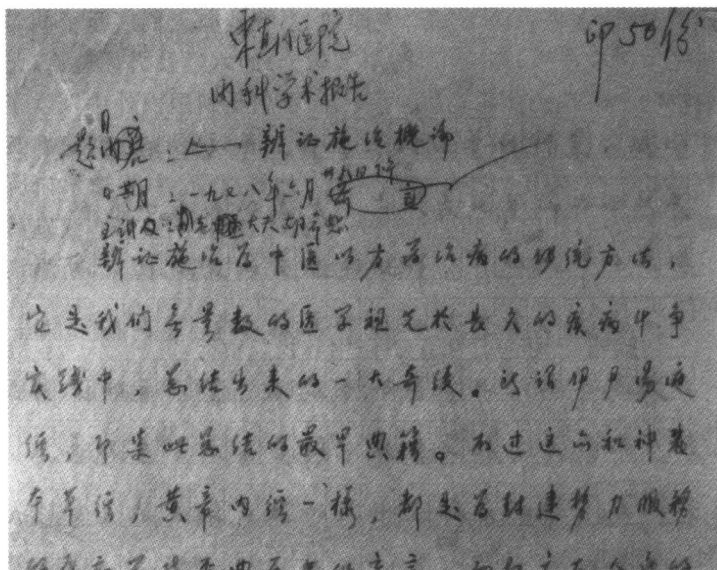 印50份
东直门医院
内科学术报告
题目：辨证施治概论
日期：一九七八年六月廿八日下午
主讲及
辨证施治为中医以方药治病的传统方法，
它是我们无量数的医学祖先于长久的疾病斗争
实践中，总结出来的一大奇绩。所谓伊尹汤液
经，即集此总结的最早典籍。不过这亦和神农
本草经，黄帝内经一样，都是为封建势力服务